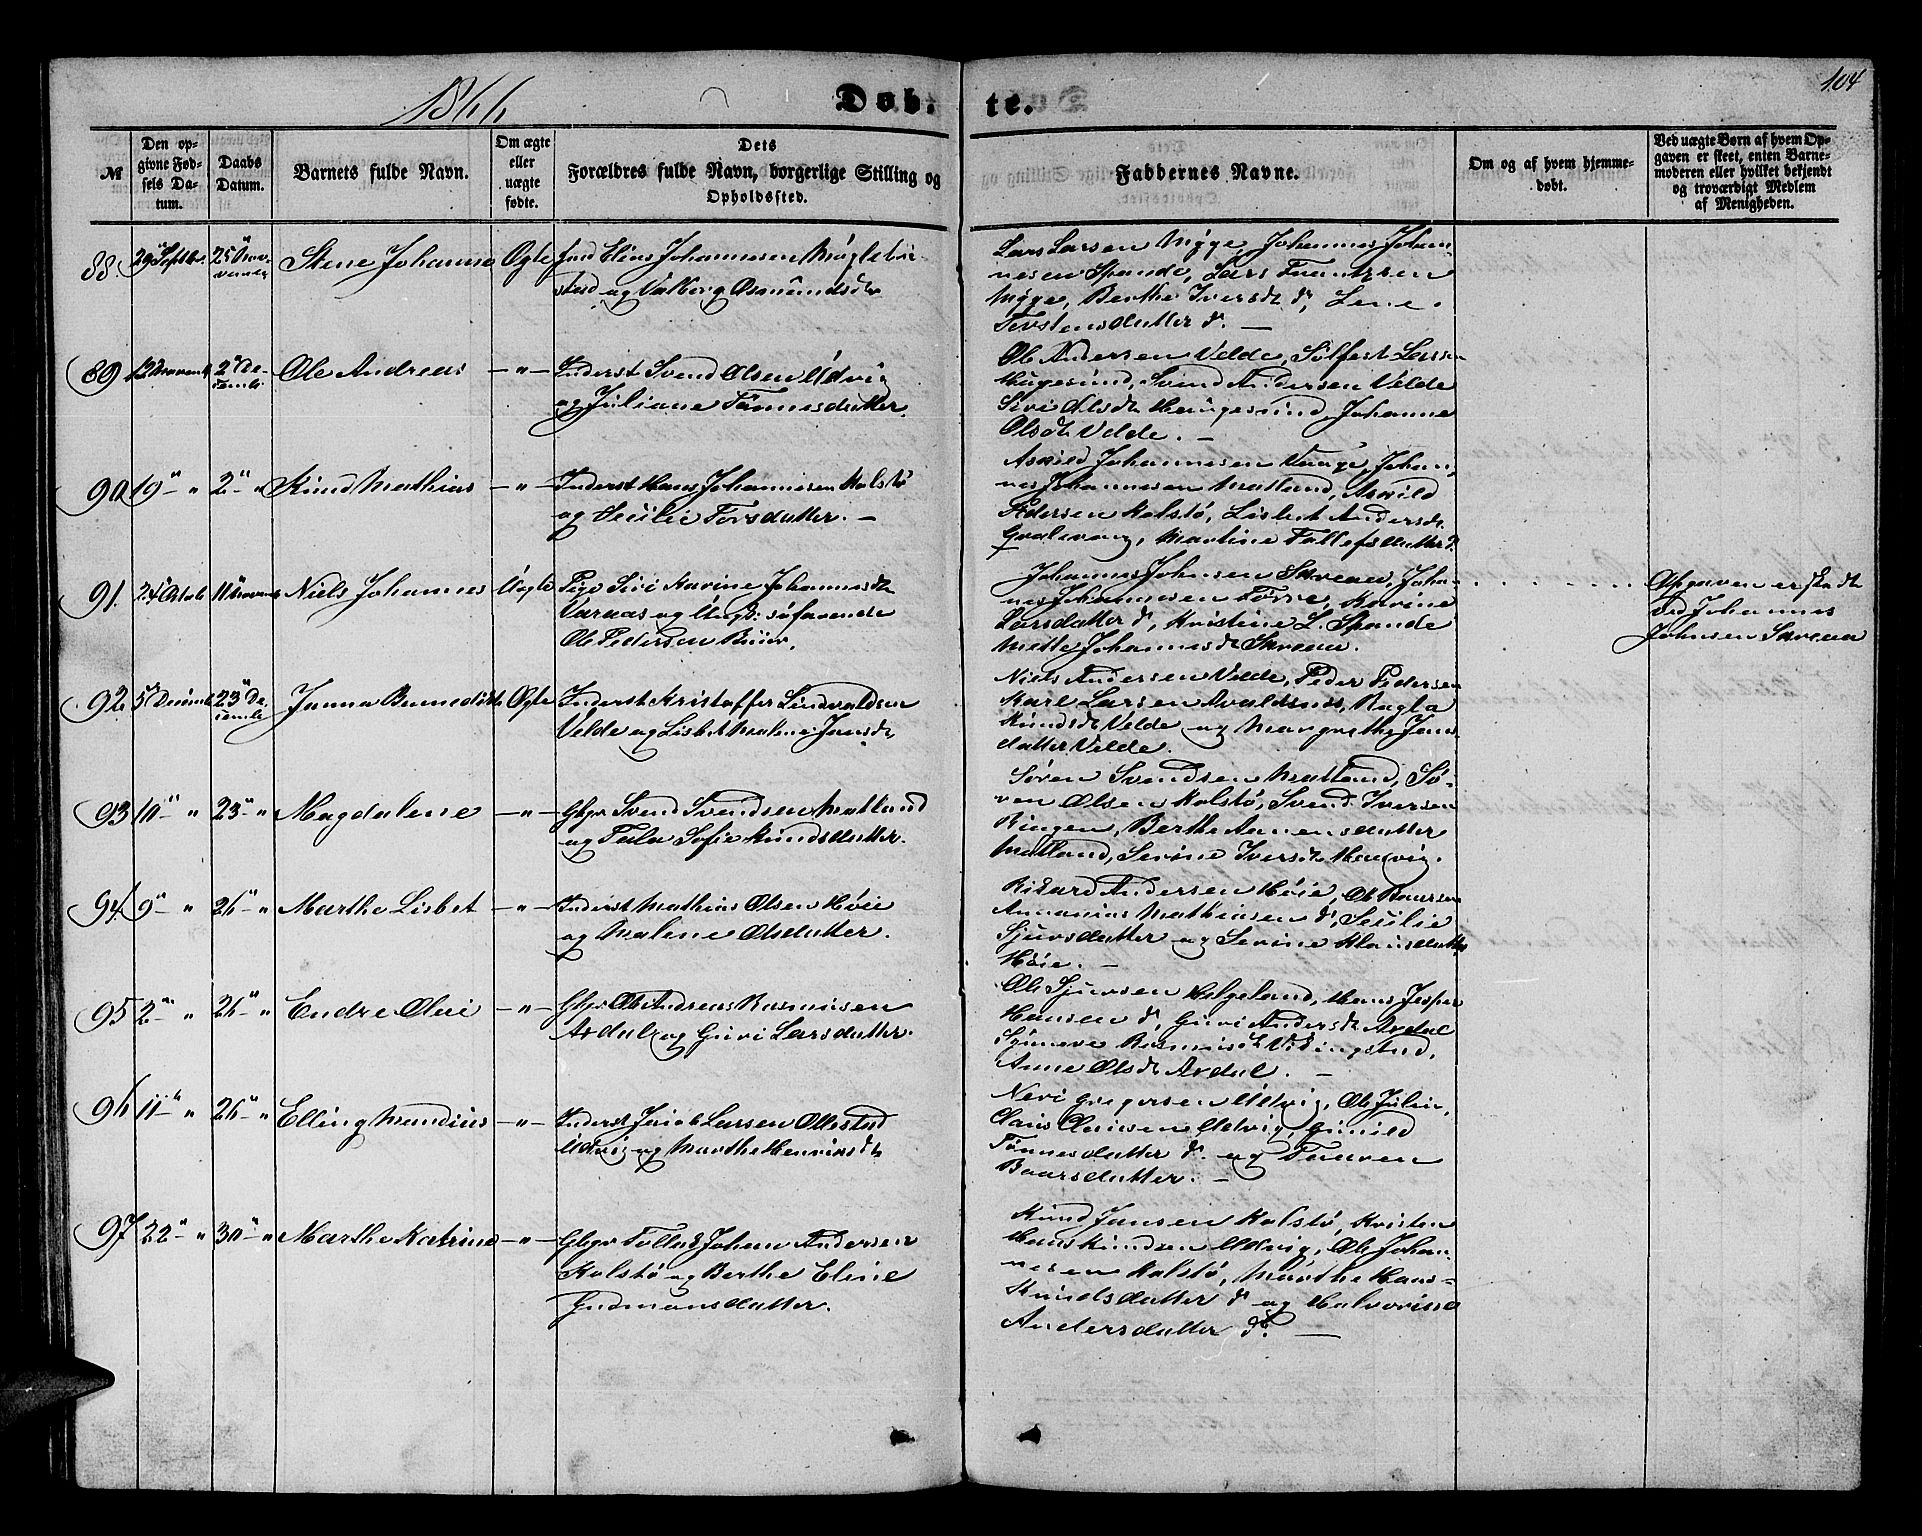 1866
Døb-
te.
104
№
Den op-
givne Fød-
sels Da-
tum.
Daabs
Datum.
Barnets fulde Navn.
Om ægte
eller
uægte
fødte.
Dets
Forældres fulde Navn, borgerlige Stilling og
Opholdssted.
Faddernes Navne.
Om og af hvem hjemme-
døbt.
Ved uægte Børn af hvem Op-
gaven er skeet, enten Barne-
moderen eller hvilket bekjendt
og troværdigt Medlem
af Menigheden.
88. 29 Septbr. 25 Nov-
vemb Stene Johanna Ægte Elias Johannesen
og Valborg Osmundsdtr
Lars Larsen Mÿge, Johannes Johan-
nesen Spande, Lars Frantzsen
Mÿge, Berthe Iversdtr do, Lene
Torstensdatter do. —
89 12 Novemb 2 De-
cemb Ole Andreas —"— Inderst Svend Olsen Udvig
og Juliane Tönnesdatter.
Ole Andersen Velde, Sölfest Larsen
Haugesund, Svend Andersen Velde
Siri Olsdtr Haugesund, Johanne
Olsdtr Velde. —
90 19 — " 2 — " Knud Mathias —"— Inderst Hans Johannesen Kolstø
og Cecilie Torsdatter. —
Askild Johannesen Vaage, Johan-
nes Johannesen Matland, Askild
Pedersen Kolstø, Lisbet Andersdtr
Martine Tollefsdatter do.
91. 24 Octob 11 Novemb Niels Johannes Uægte Pige Siri Karine Johannesdtr
Varnæs og Ungk. søfarende
Ole Pedersen
Johannes Johnsen Skreau, Johan-
nes Johannesen Førre, Karine
Larsdatter do, Kristine L. Spande
Mette Johannesdtr Skreau.
Opgaven er skedt
ved Johannes
Johnsen Skreau
92 5 Decemb 23 De-
cemb Janna Benedikte Ægte Inderst Kristoffer Lindvaldsen
Velde og Lisbet Malene Jansdtr
Niels Andersen Velde, Peder Pedersen
Karl Larsen Avaldsnes, Ragla
Knudsdtr Velde og Margrethe Jans-
datter Velde.
93 10 " " 23 — " Magdalene —"— Gbgr Svend Svendsen Matland
og Tala Sofie Knudsdatter.
Sören Svendsen Matland, Sö-
ren Olsen Kolstø, Svend Iversen
Ringen, Berthe Aamensdatter
Matland, Serine Iversdtr Haavig.
94 9 " " 26 — " Marthe Lisbet —"— Inderst Mathias Olsen Høie
og Malene Olsdatter.
Rikard Andersen Høie, Ole Baarsen
Annanias Mathiasen do, Cecilie
Sjursdatter og Serine Klausdatter
Høie. —
95 2 " " 26 — " Endre Olai —"— Gbgr Ole Andreas Rasmusen
Ardal og Guri Larsdatter.
Ole Sjursen Helgeland, Hans Jesper
Hansen do, Guri Andersdtr Ardal
Synneve Rasmusdtr Vikingstad,
Anne Olsdtr Ardal. —
96 11 — " 26 — " Elling Mandius —"— Inderst Jacob Larsen Ollestad
Udvig og Marthe Henriksdtr
Neri Gregersen Udvig, Ole Julin,
Claus Clausen Udvig, Gunild
Tönnesdatter do. og Taaren
Baarsdatter. —
97 22 — " 30 — " Marthe Katrine —"— Gbgr Tollak Johan Andersen
Kolstø og Berthe Eline
Gudmansdatter.
Knud Jansen Kolstø, Kristen
Hans Knudsen Udvig, Ole Johan-
nesen Kolstø, Marthe Hans-
Knudsdatter do og Halvorine
Andersdatter do. —